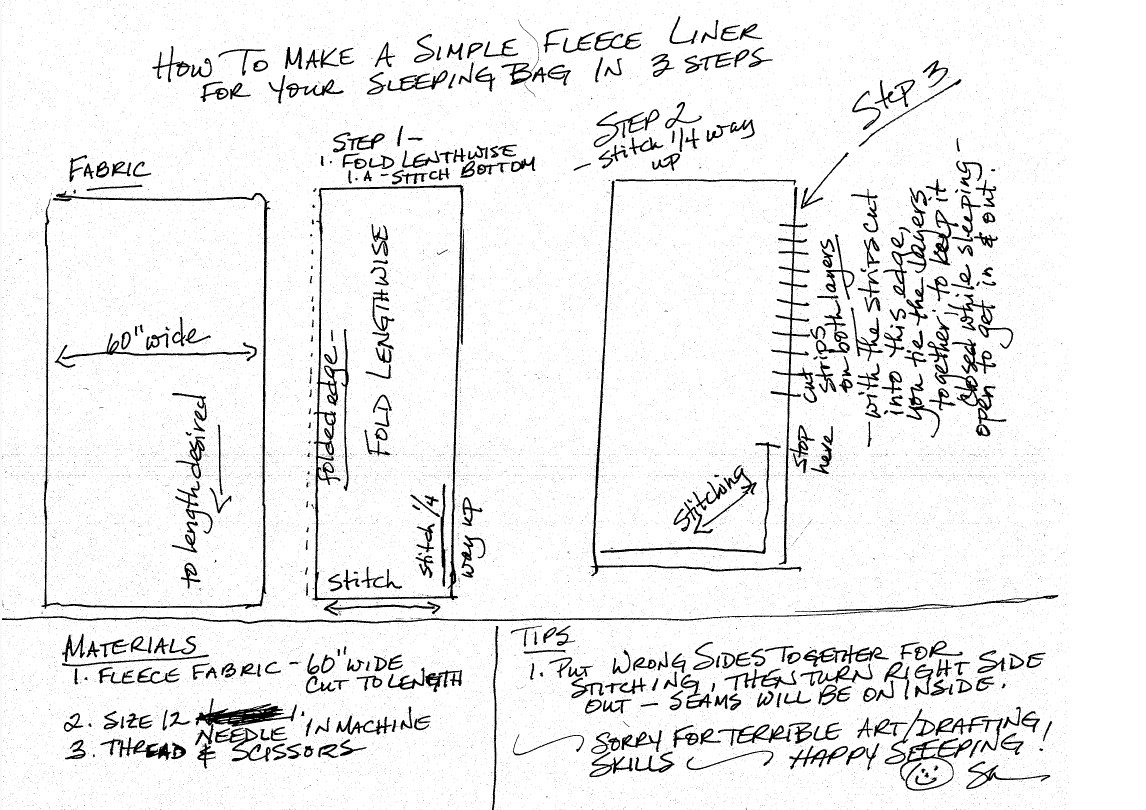 HOW TO MAKE A SIMPLE FLEECE LINER
FOR YOUR SLEEPING BAG IN 3 STEPS
FABRIC
60" wide
to length desired
STEP 1 -
1. FOLD LENTHWISE
1.A - STITCH BOTTOM
folded edge -
FOLD LENGTHWISE
stitch 1/4
way up
stitch
STEP 2
- stitch 1/4 way
up
stitching
stop
here
Step 3
cut
strips
on both layers
- with the strips cut
into this edge,
you tie the layers
together to keep it
closed while sleeping -
open to get in & out.
MATERIALS
1. FLEECE FABRIC - 60" WIDE
CUT TO LENGTH
2. SIZE 12
NEEDLE IN MACHINE
3. THREAD & SCISSORS
TIPS
1. PUT WRONG SIDES TOGETHER FOR
STITCHING, THEN TURN RIGHT SIDE
OUT - SEAMS WILL BE ON INSIDE.
SORRY FOR TERRIBLE ART/DRAFTING
SKILLS HAPPY SLEEPING!